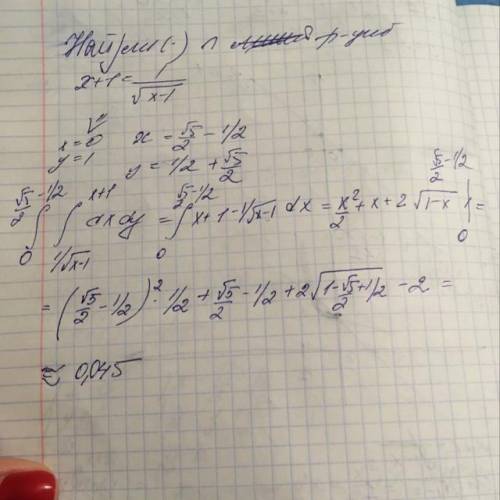 Найдем (·) ∩
x+1 = 1/√(x-1)
x=0
y=1
x = √5/2 - 1/2
y = 1/2 + √5/2
∫₀^(√5/2 - 1/2) ∫_(1/√(x-1))^(x+1) dx dy = ∫₀^(√5/2 - 1/2) x+1-1/√(x-1) dx = x²/2 + x + 2√(1-x) |₀^(√5/2 - 1/2) =
= (√5/2 - 1/2)² · 1/2 + √5/2 - 1/2 + 2√(1-√5/2+1/2) - 2 =
≈ 0,045